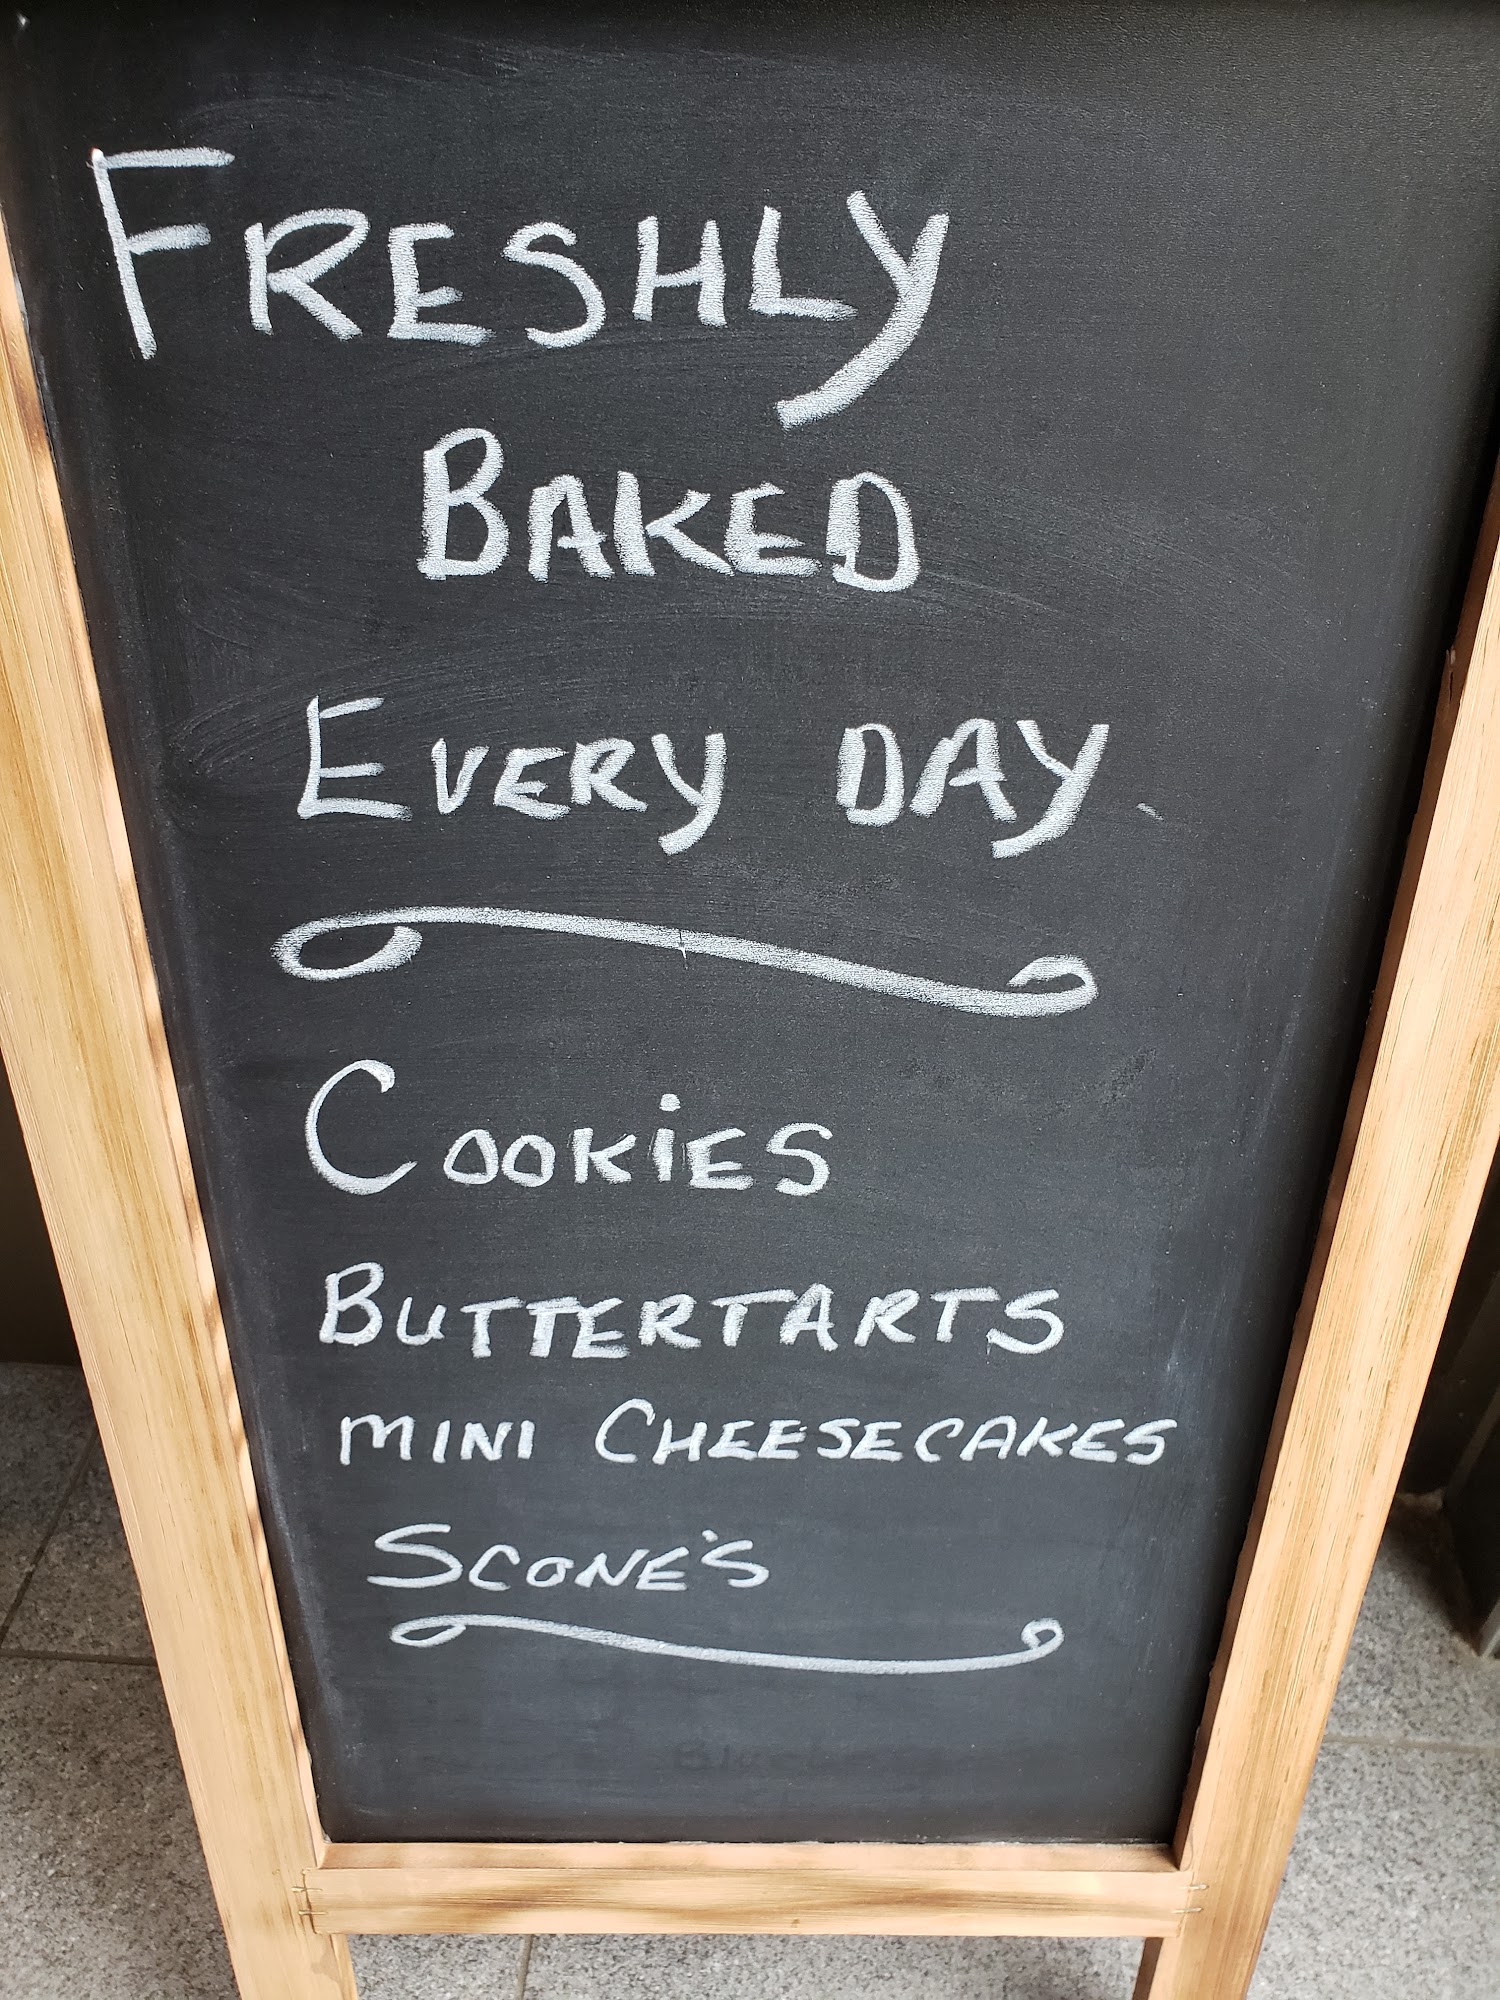 FRESHLY
BAKED
EVERY DAY
COOKiES
BUTTERTARTS
MINI CHEESECAKES
SCONE'S